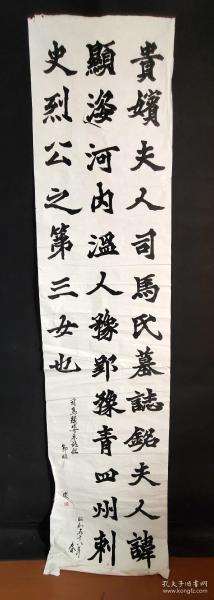 貴嬪夫人司馬氏墓誌銘夫人諱
顯姿河內溫人豫郢豫青四州刺
史烈公之第三女也
孔夫子旧书网